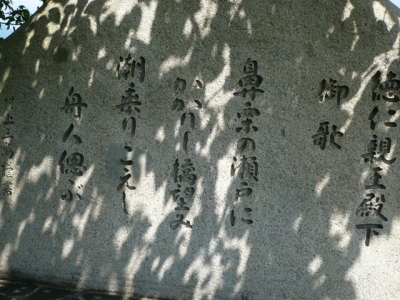 徳仁親王殿下
御歌
鼻栗の瀬戸に
かかりし橋望み
潮乗りこえし
舟人偲ぶ